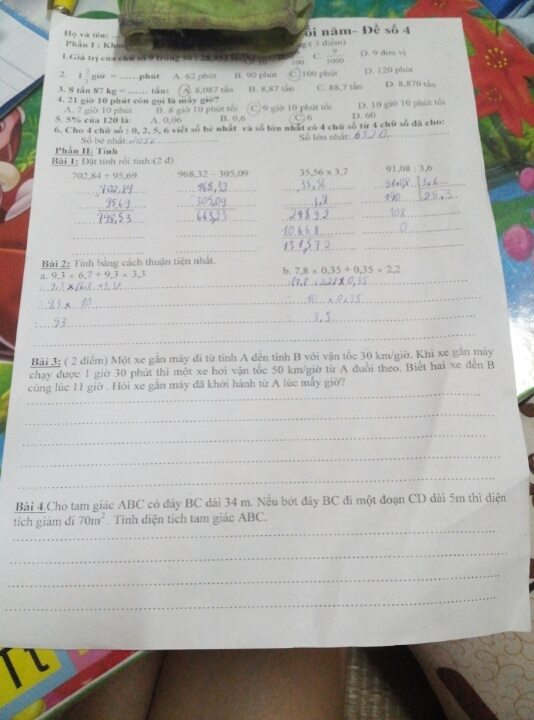 Họ và tên: ... ối năm- Đề số 4
Phần I : Kho ... g ( 3 điểm)
1.Giá trị của chữ số 9 trong số : 28,953 là: A. 9/10 B. 9/100 C. 9/1000 D. 9 đơn vị
2. 1 giờ = ......phút A. 62 phút B. 90 phút C. 100 phút D. 120 phút
3. 8 tấn 87 kg = ...... tấn: A. 8,087 tấn B. 8,87 tấn C. 88,7 tấn D. 8,870 tấn
4. 21 giờ 10 phút còn gọi là mấy giờ?
A. 7 giờ 10 phút B. 8 giờ 10 phút tối C. 9 giờ 10 phút tối D. 10 giờ 10 phút tối
5. 5% của 120 là: A. 0,06 B. 0,6 C. 6 D. 60
6. Cho 4 chữ số : 0, 2, 5, 6 viết số bé nhất và số lớn nhất có 4 chữ số từ 4 chữ số đã cho:
Số bé nhất: Số lớn nhất: 6520
Phần II: Tính
Bài 1: Đặt tính rồi tính:(2 đ)
702,84 + 95,69 968,32 – 305,09 35,56 x 3,7 91,08 : 3,6
702,84 968,32 35,56 91,08 3,6
95,69 305,09 190 25,3
798,53 663,23 24892 108
10668 0
131,572
Bài 2: Tính bằng cách thuận tiện nhất.
a. 9,3 × 6,7 + 9,3 × 3,3 b. 7,8 × 0,35 + 0,35 × 2,2
= 9,3 × (6,7 + 3,3) = (7,8 + 2,2) × 0,35
= 9,3 × 10 = 10 × 0,35
= 93 = 3,5
Bài 3: ( 2 điểm) Một xe gắn máy đi từ tỉnh A đến tỉnh B với vận tốc 30 km/giờ. Khi xe gắn máy
chạy được 1 giờ 30 phút thì một xe hơi vận tốc 50 km/giờ từ A đuổi theo. Biết hai xe đến B
cùng lúc 11 giờ . Hỏi xe gắn máy đã khởi hành từ A lúc mấy giờ?
Bài 4.Cho tam giác ABC có đáy BC dài 34 m. Nếu bớt đáy BC đi một đoạn CD dài 5m thì diện
tích giảm đi 70m². Tính diện tích tam giác ABC.